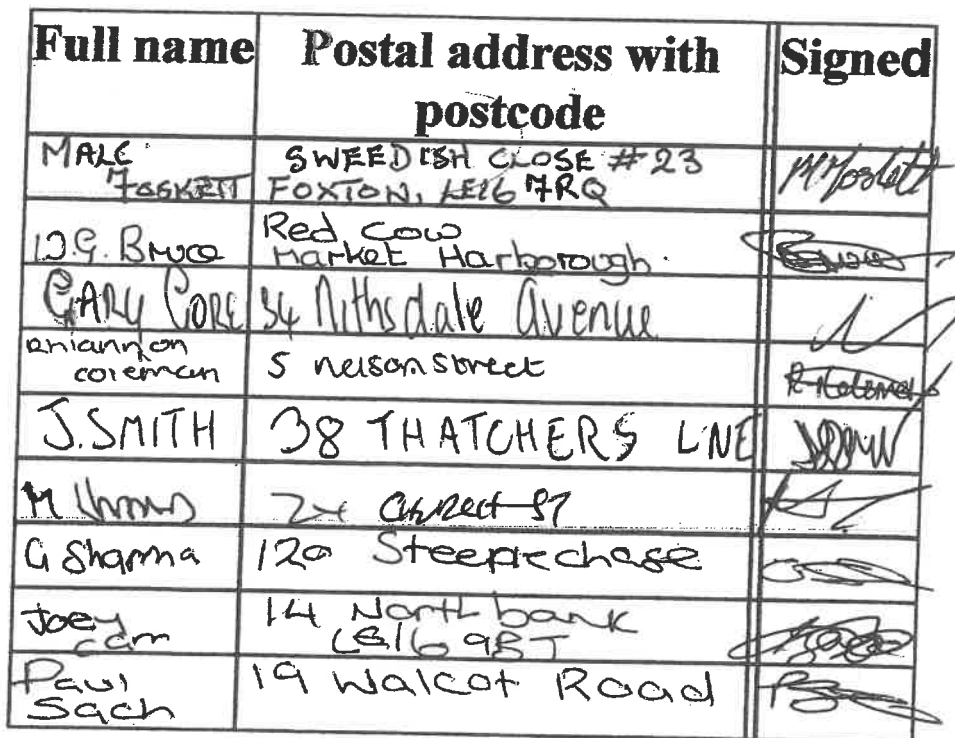 Full name Postal address with postcode Signed
MALC FOSKETT SWEEDISH CLOSE #23
FOXTON, LE16 7RQ
D.G. Bruce Red Cow
Market Harborough.
GARY CORE 34 Nithsdale Avenue
Rhiannon coleman 5 nelson street
J. SMITH 38 THATCHERS LNE
M
G Sharma 120 Steeplechase
Joey cam 14 North bank
LE16 9BT
Paul Sach 19 Walcot Road